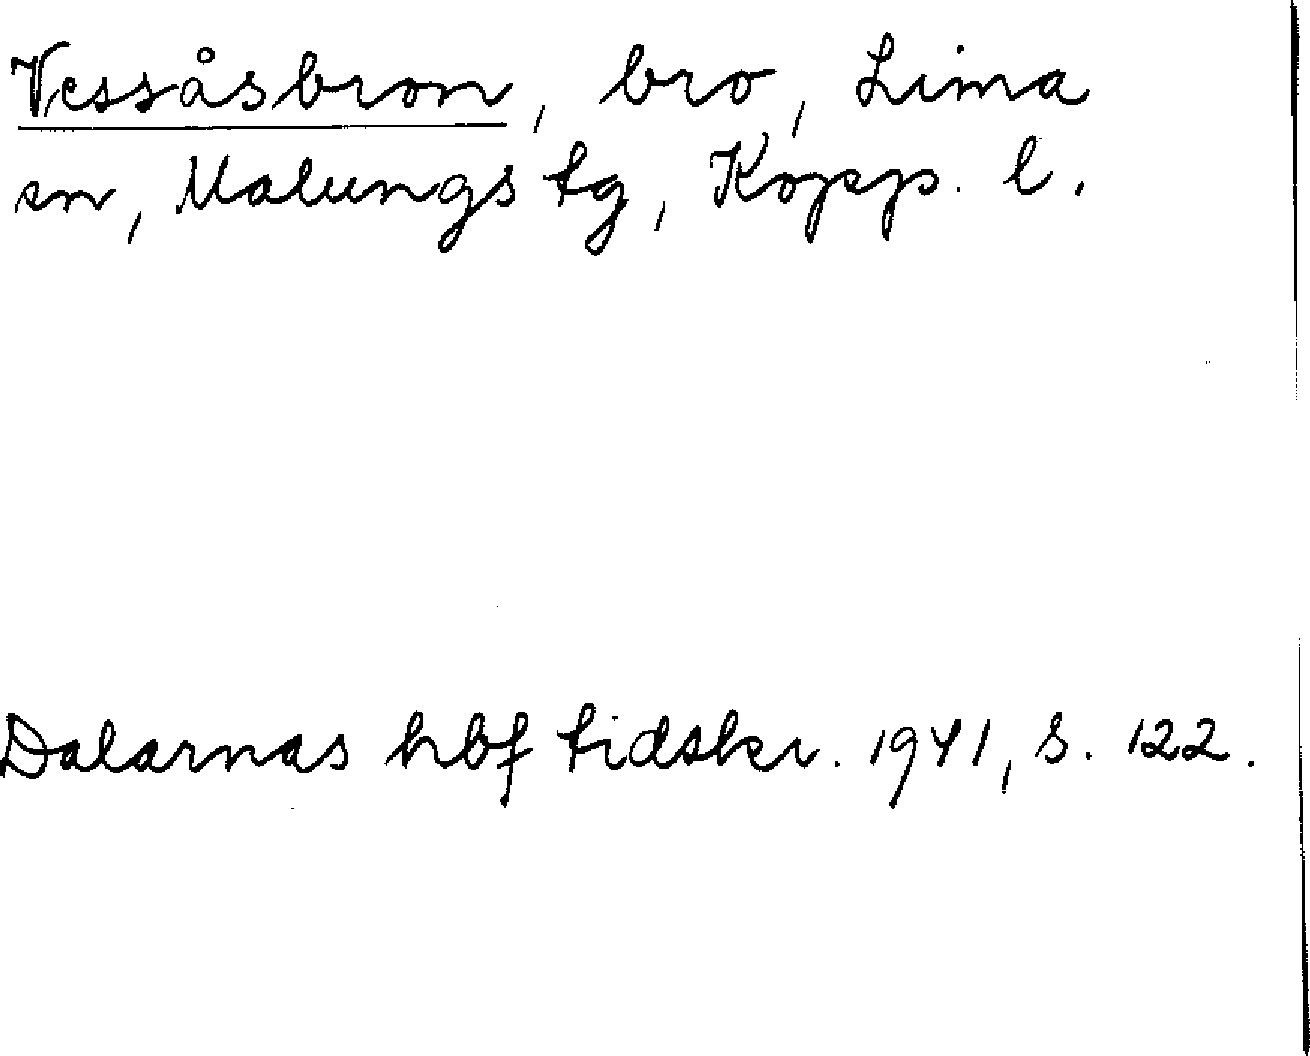 Vessåsbron, bro, Lima
sn, Malungs tg, Kopp. l.
Dalarnas hbf tidskr. 1941, s. 122.